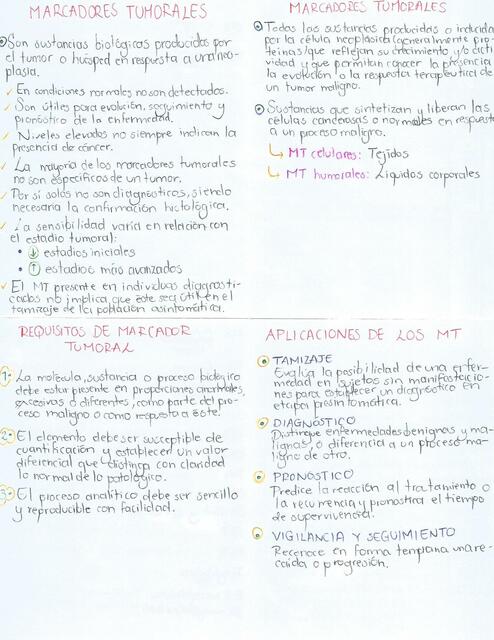 MARCADORES TUMORALES
Son sustancias biológicas producidas por
el tumor o huésped en respuesta a una neo-
plasia.
✓ En condiciones normales no son detectados.
✓ Son útiles para evolución, seguimiento y
pronóstico de la enfermedad.
✓ Niveles elevados no siempre indican la
presencia de cáncer.
✓ La mayoría de los marcadores tumorales
no son específicos de un tumor.
✓ Por sí solos no son diagnósticos, siendo
necesaria la confirmación histológica.
✓ La sensibilidad varía en relación con
el estadio tumoral:
• ↓ estadios iniciales
• ↑ estadios más avanzados
✓ El MT presente en individuos diagnosti-
cados no implica que éste sea útil en el
tamizaje de la población asintomática.
MARCADORES TUMORALES
Todas las sustancias producidas o inducidas
por la célula neoplásica (generalmente pro-
teínas) que reflejan su crecimiento y/o acti-
vidad y que permitan conocer la presencia,
la evolución o la respuesta terapéutica de
un tumor maligno.
Sustancias que sintetizan y liberan las
células cancerosas o normales en respuesta
a un proceso maligno.
↳ MT celulares: Tejidos
↳ MT humorales: Líquidos corporales
REQUISITOS DE MARCADOR
TUMORAL
1. La molécula, sustancia o proceso biológico
debe estar presente en proporciones anormales,
excesivas o diferentes, como parte del pro-
ceso maligno o como respuesta a éste.
2. El elemento debe ser susceptible de
cuantificación y establecer un valor
diferencial que distinga con claridad
lo normal de lo patológico.
3. El proceso analítico debe ser sencillo
y reproducible con facilidad.
APLICACIONES DE LOS MT
TAMIZAJE
Evalúa la posibilidad de una enfer-
medad en sujetos sin manifestacio-
nes para establecer un diagnóstico en
etapa presintomática.
DIAGNÓSTICO
Distingue enfermedades benignas y ma-
lignas, o diferencia a un proceso ma-
ligno de otro.
PRONÓSTICO
Predice la reacción al tratamiento o
la recurrencia y pronostica el tiempo
de supervivencia.
VIGILANCIA Y SEGUIMIENTO
Reconoce en forma temprana una re-
caída o progresión.